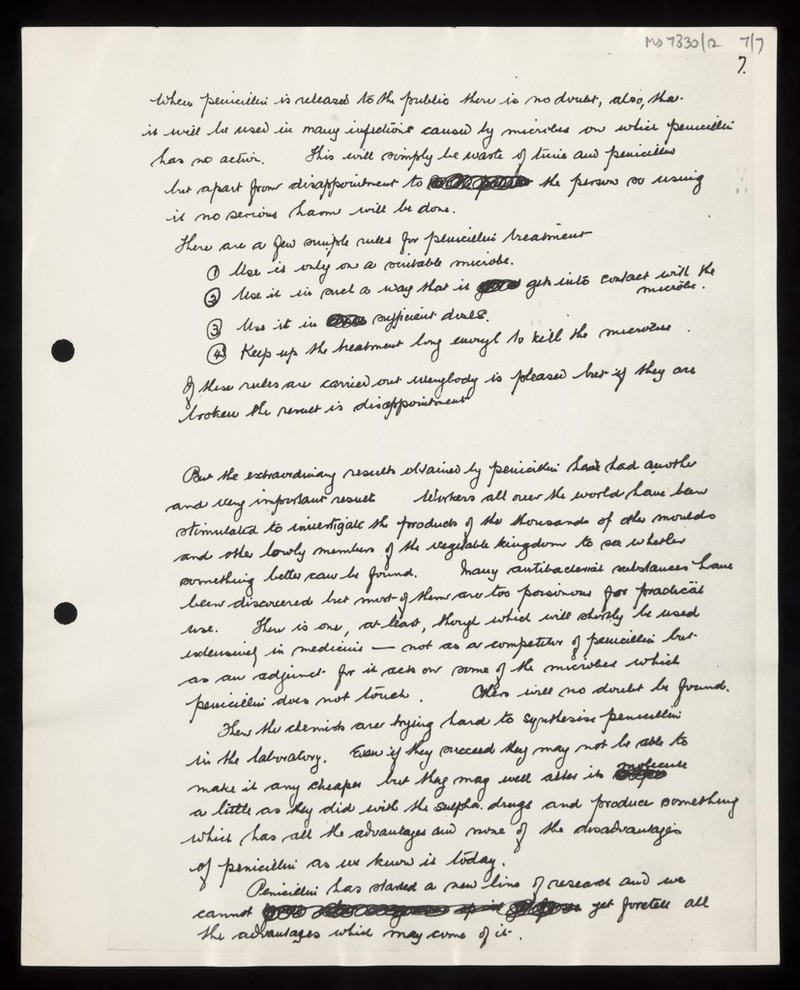 MS 7330/12 7/7
7.
When penicillin is released to the public there is no doubt, also, that
it will be used in many infections caused by microbes on which penicillin
has no action. This will simply be waste of time and penicillin
but apart from disappointment to the person so using
it no serious harm will be done.
There are a few simple rules for penicillin treatment
① Use it only on a suitable microbe.
② Use it in such a way that it gets into contact with the
microbe.
③ Use it in sufficient doses.
④ Keep up the treatment long enough to kill the microbes.
If these rules are carried out everybody is pleased but if they are
broken the result is disappointment
But the extraordinary results obtained by penicillin have had another
and very important result Workers all over the world have been
stimulated to investigate the products of the thousands of other moulds
and other lowly members of the vegetable kingdom to see whether
something better can be found. Many antibacterial substances have
been discovered but most of them are too poisonous for practical
use. There is one, at least, though which will shortly be used
extensively in medicine — not as a competitor of penicillin but
as an adjunct for it acts on some of the microbes which
penicillin does not touch. Others will no doubt be found.
Then the chemists are trying hard to synthesise penicillin
in the laboratory. Even if they succeed they may not be able to
make it any cheaper but they may well alter its molecule
a little as they did with the sulpha. drugs and produce something
which has all the advantages and none of the disadvantages
of penicillin as we know it today.
Penicillin has started a new line of research and we
cannot yet foretell all
the advantages which may come of it.